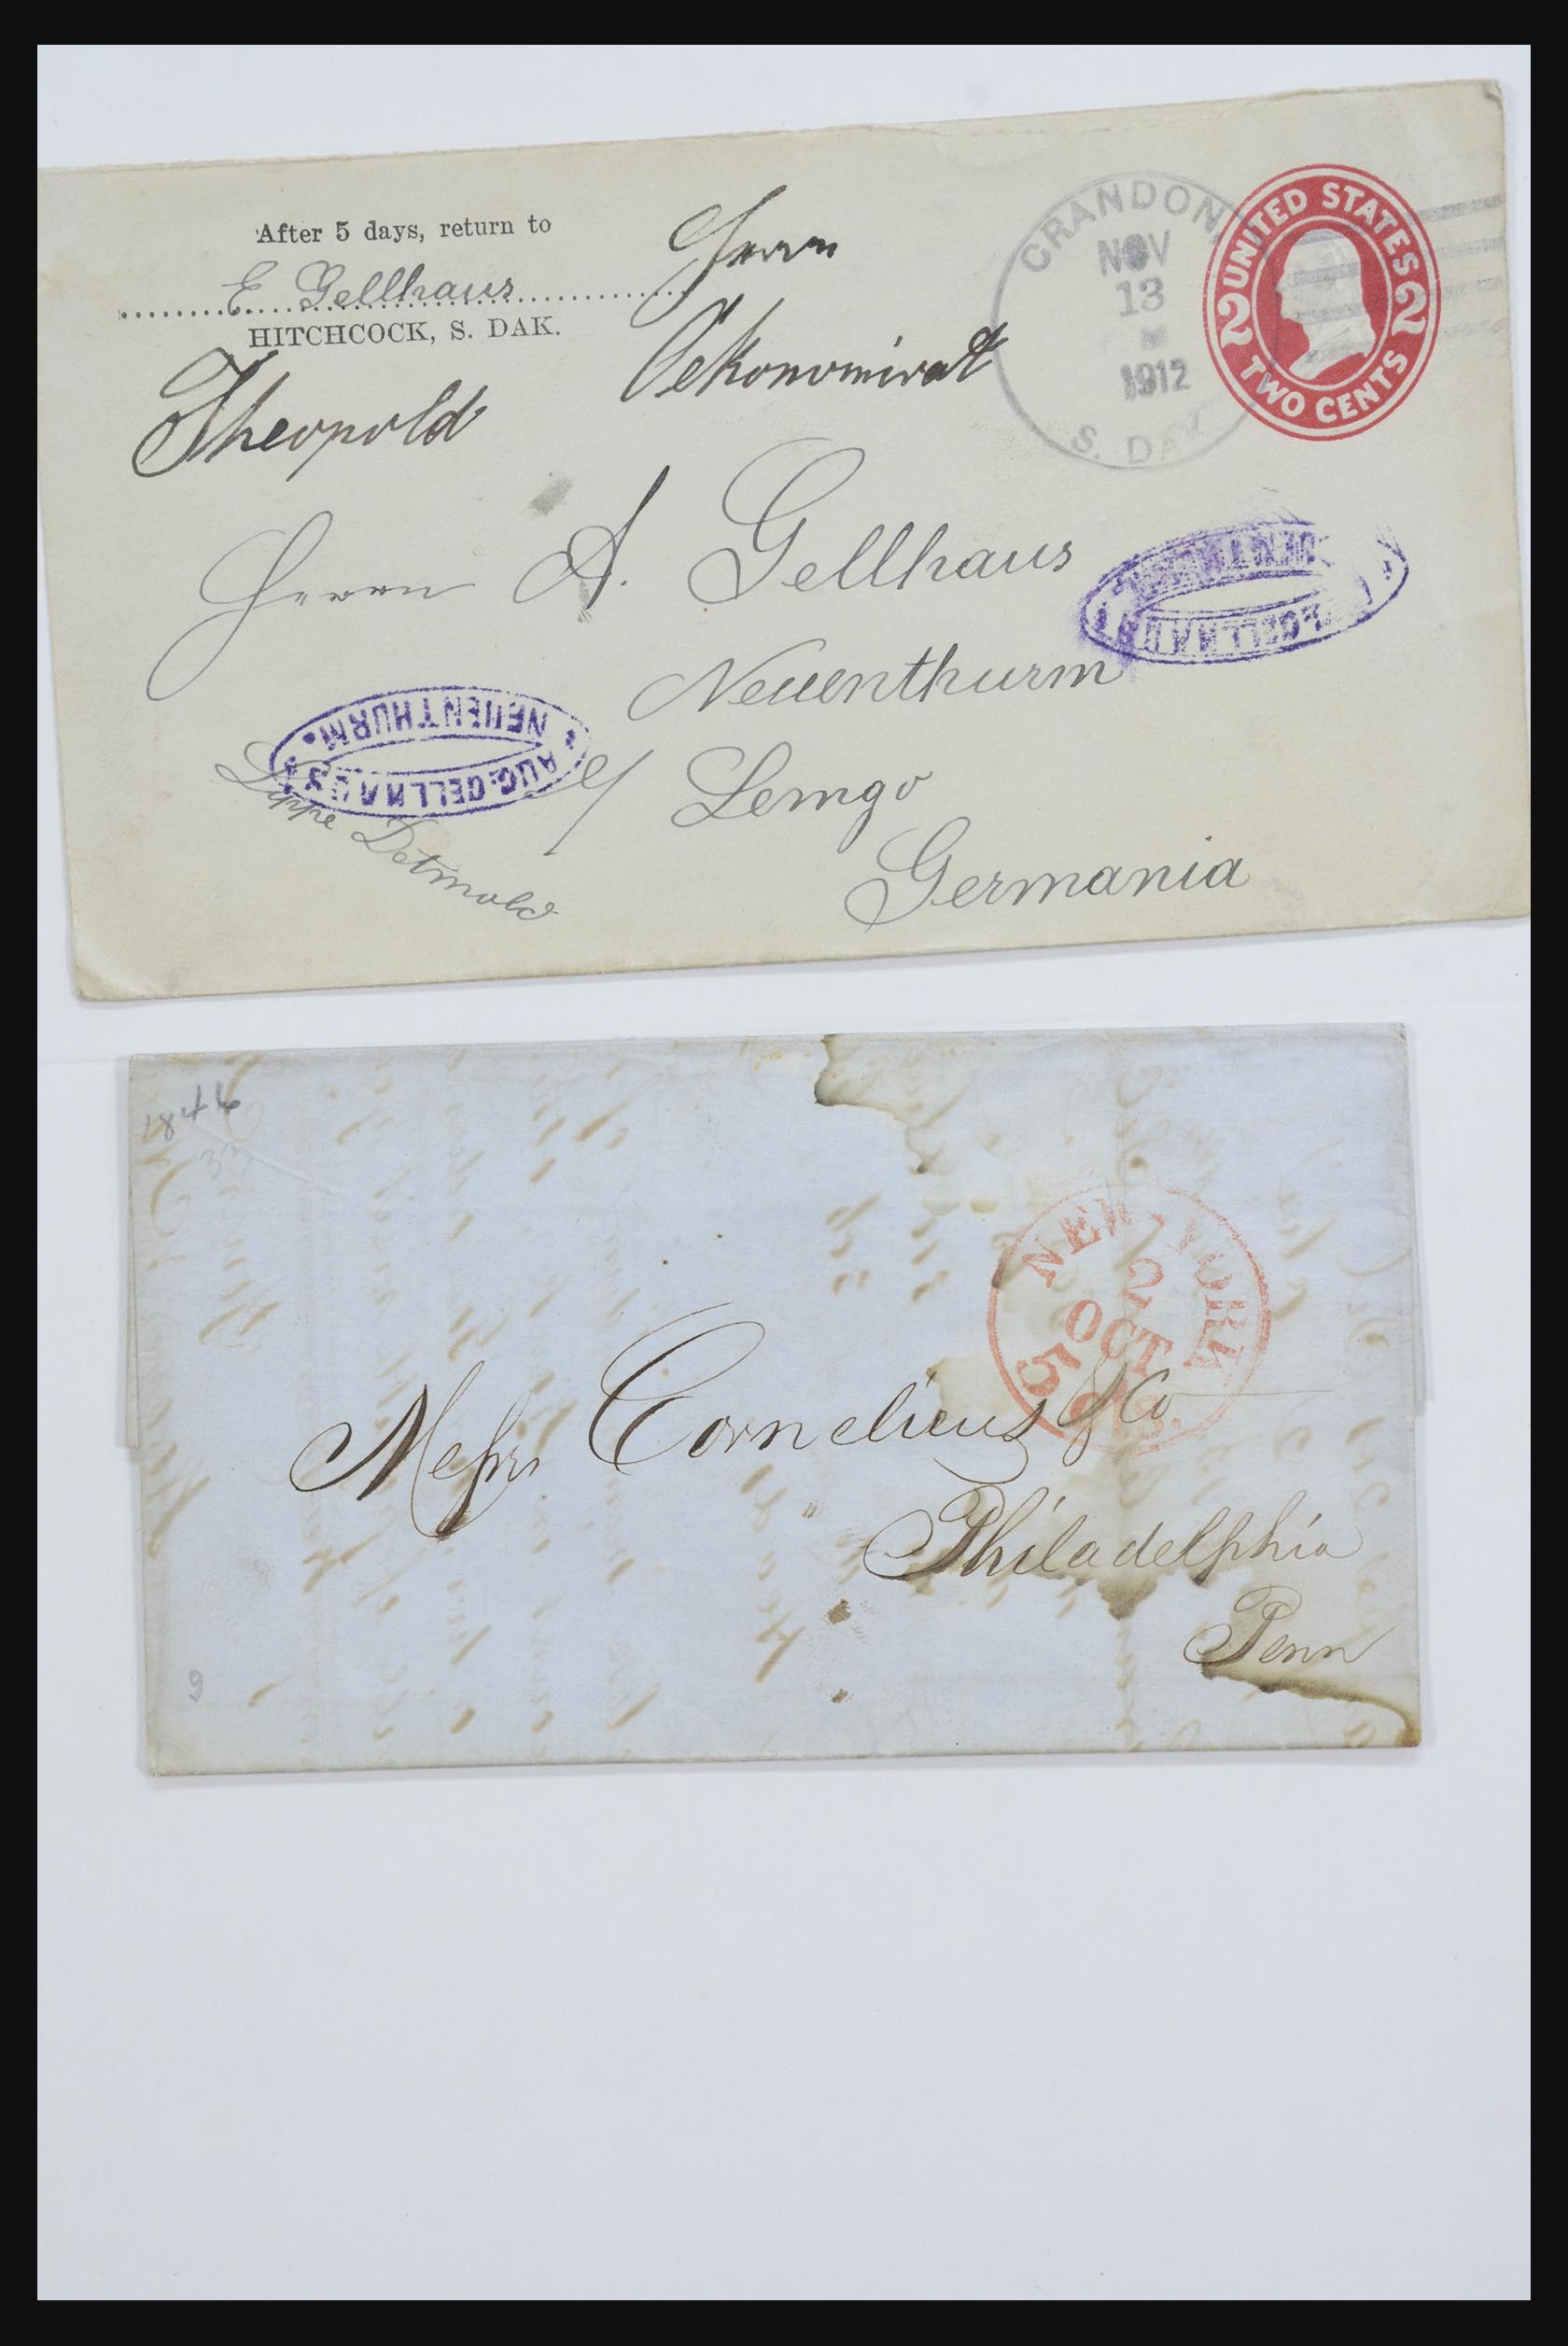 After 5 days, return to
E Gellhaus
HITCHCOCK, S. DAK.
Herrn
Oekonomierat
Theopold
CRANDON
NOV
13
1912
S. DAK
UNITED STATES
2 2
TWO CENTS
Herrn A. Gellhaus
Neuenthurm
AUG. GELLHAUS
NEUENTHURM.
Lemgo
Lippe Detmold
Germania
1846
NEW-YORK
2
OCT
5 cts.
Messrs Cornelius & Co
Philadelphia
Penn
9